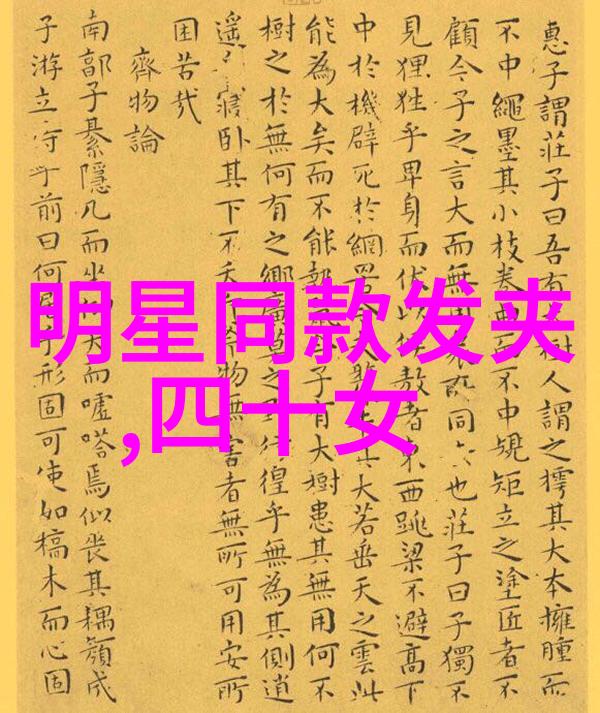 惠子謂莊子曰吾有樹人謂之樗其大本擁腫而
不中繩墨其小枝卷曲而不中規矩立之塗匠者不
顧今子之言大而無同也莊子曰子獨不
見狸狌乎卑身而伏以候敖者東西跳梁不避高下
中於機辟死於網罟今夫其大若垂天之雲此
能為大矣而不能執鼠子有大樹患其無用何不
樹之於無何有之鄉廣莫之野彷徨乎無為其側逍
遙寢卧其下不夭斤斧物無害者無所可用安所
困苦哉
齊物論
南郭子綦隱几而坐仰天而嘘嗒焉似喪其耦顏成
子游立侍乎前曰何居乎形固可使如槁木而心固
明星同款发夹
,四十女